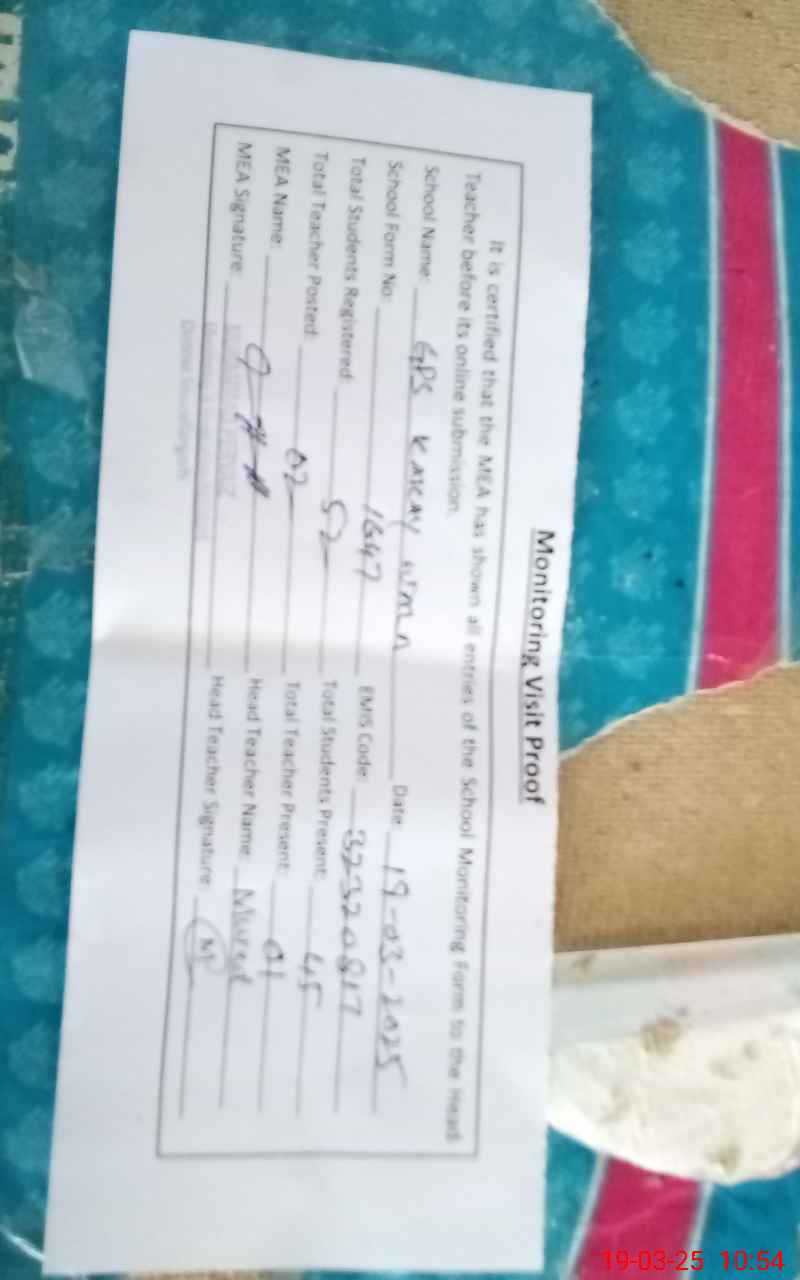 Monitoring Visit Proof
It is certified that the MEA has shown all entries of the School Monitoring Form to the Head
Teacher before its online submission.
School Name: GPS Date: 19-03-2025
School Form No: 1647 EMIS Code: 32320817
Total Students Registered: 52 Total Students Present: 45
Total Teacher Posted: 02 Total Teacher Present: 01
MEA Name: Head Teacher Name:
MEA Signature: Head Teacher Signature:
19-03-25 10:54